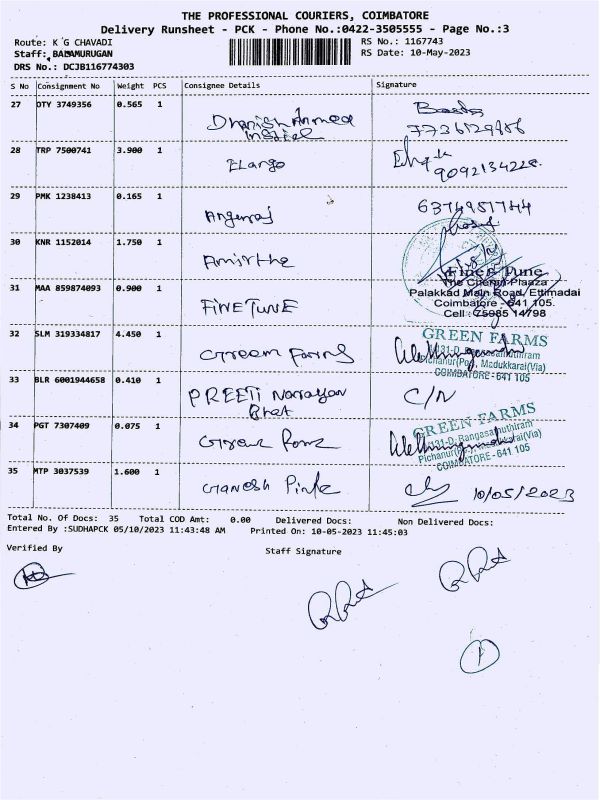 THE PROFESSIONAL COURIERS, COIMBATORE
Delivery Runsheet - PCK - Phone No.:0422-3505555 - Page No.:3
Route: K G CHAVADI RS No.: 1167743
Staff: BALAMURUGAN RS Date: 10-May-2023
DRS No.: DCJB116774303
S No Consignment No Weight PCS Consignee Details Signature
27 OTY 3749356 0.565 1
Dhanish Ahmed
28 TRP 7500741 3.900 1
Elango
29 PMK 1238413 0.165 1
6374951744
30 KNR 1152014 1.750 1
Amirtha
31 MAA 859874093 0.900 1
FINE TUNE
Fine Tune
The Chenin Plaaza
Palakkad Main Road, Ettimadai
Coimbatore - 641 105.
Cell : 75985 14798
32 SLM 319334817 4.450 1
Green Farms
GREEN FARMS
131-D, Rangasamuthiram
Pichanur(Po), Madukkarai(Via)
COIMBATORE - 641 105
33 BLR 6001944658 0.410 1
PREETI Narayan
Bhat
C/N
34 PGT 7307409 0.075 1
GREEN FARMS
131-D, Rangasamuthiram
Pichanur(Po), Madukkarai(Via)
COIMBATORE - 641 105
35 MTP 3037539 1.600 1
Ganesh 10/05/2023
Total No. Of Docs: 35 Total COD Amt: 0.00 Delivered Docs: Non Delivered Docs:
Entered By :SUDHAPCK 05/10/2023 11:43:48 AM Printed On: 10-05-2023 11:45:03
Verified By Staff Signature